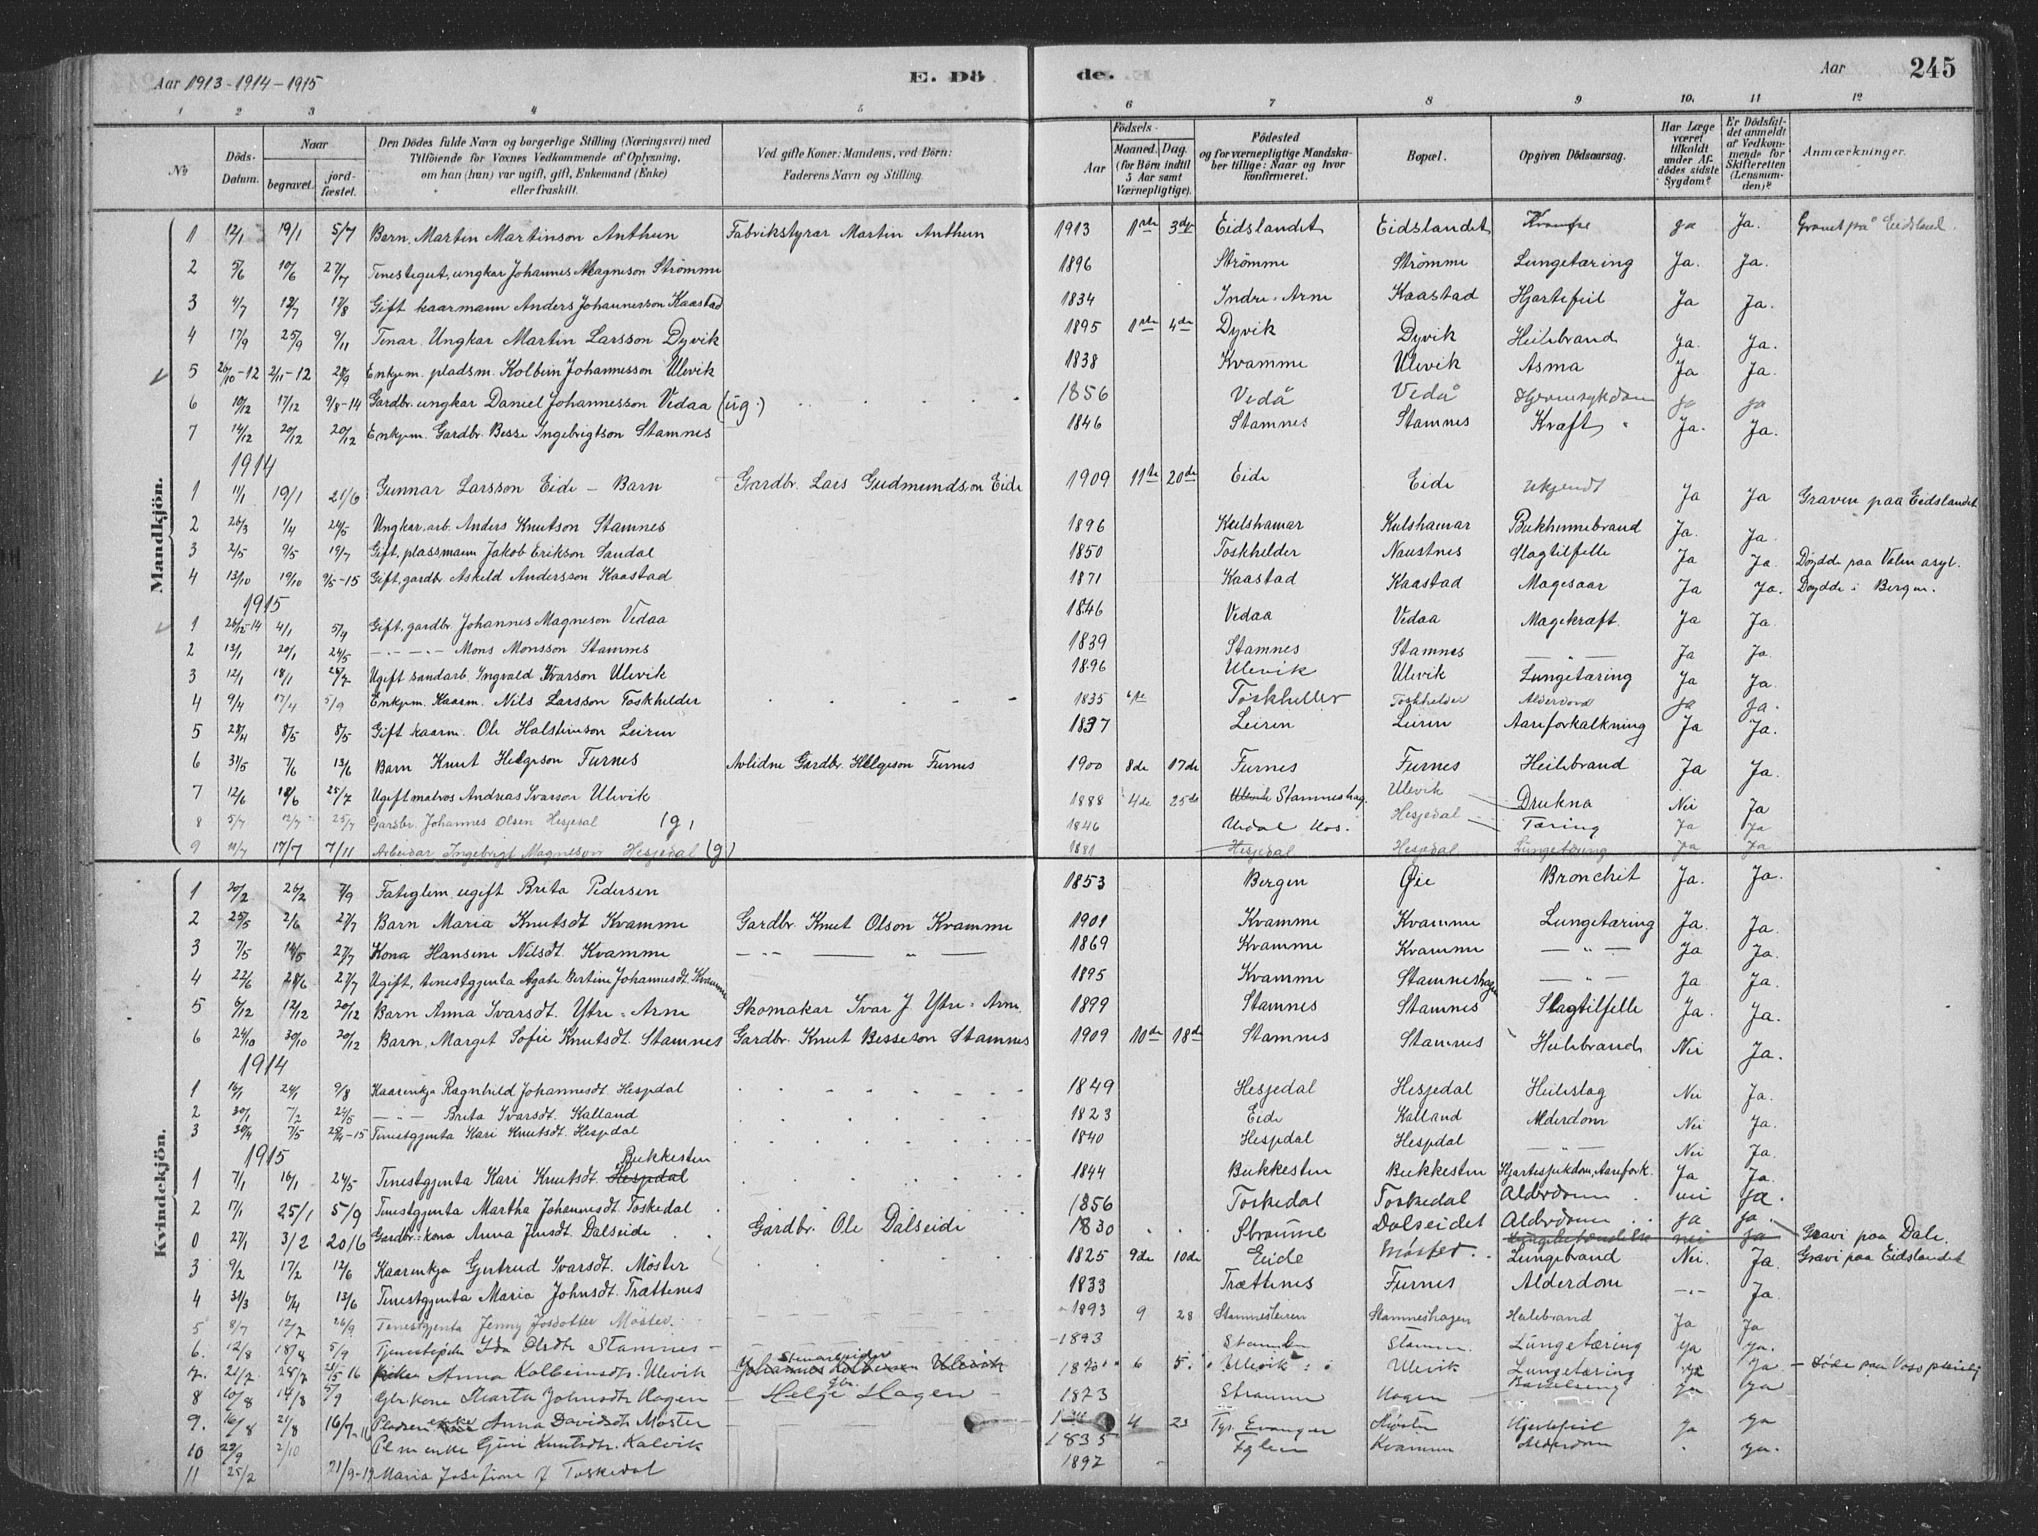 Aar 1913-1914-1915 E. Dö de. Aar 245
1 2 3 4 5 6 7 8 9 10. 11 12
No Döds-Datum. Naar begravet. jord-fæstet. Den Dödes fulde Navn og borgerlige Stilling (Næringsvei) med Tilföiende for Voxnes Vedkommende af Oplysning, om han (hun) var ugift, gift, Enkemand (Enke) eller fraskilt. Ved gifte Koner: Mandens, ved Börn: Faderens Navn og Stilling. Födsels- Aar Maaned. Dag. (for Börn indtil 5 Aar samt Værnepligtige). Födested og for værnepligtige Mandskaber tillige: Naar og hvor konfirmeret. Bopæl. Opgiven Dödsaarsag. Har Læge været tilkaldt under Afdödes sidste Sygdom? Er Dödsfaldet anmeldt af Vedkommende for Skifteretten (Lensmanden)? Anmærkninger.
Mandkjön.
1 12/1 19/1 5/7 Barn, Martin Martinson Anthun Fabrikstyrar Martin Anthun 1913 1ste 3de Eidslandet Eidslandet Krampe ja Ja. Gravet på Eidsland.
2 5/6 10/6 27/7 Tenestegut, ungkar Johannes Magneson Strømme 1896 Strømme Strømme Lungetæring Ja. Ja.
3 4/7 12/7 17/8 Gift kaarmann Anders Johannesson Kaastad 1834 Indre-Arne Kaastad Hjartefeil Ja Ja.
4 17/9 25/9 9/11 Tenar, Ungkar Martin Larsson Dyvik 1895 1ste 4de Dyvik Dyvik Heilebrand Ja. Ja.
5 26/10-12 2/11-12 28/9 Enkjem. pladsm. Kolbein Johannesson Ulevik 1838 Kvamme Ulevik Asma Ja Ja.
6 10/12 17/12 9/8-14 Gardbr. ungkar Daniel Johannesson Vedaa (ug.) 1856 Vedå Vedå Hjernesykdom ja ja
7 14/12 20/12 20/12 Enkjem. Gardbr. Besse Ingebrigtson Stamnes 1846 Stamnes Stamnes Kræft Ja. Ja.
1914
1 11/1 19/1 21/6 Gunnar Larsson Eide - Barn Gardbr. Lars Gudmundson Eide 1909 11te 20de Eide Eide Ukjendt Ja Ja Graven paa Eidslandet
2 26/3 1/4 24/5 Ungkar, arb. Anders Knutson Stamnes 1896 Kulshamar Kulshamar Bukhinnebrand Ja. Ja.
3 2/5 9/5 19/7 Gift, plassmann Jakob Erikson Sandal 1850 Toskhelder Naustnes Slagtilfelle Ja Ja. Døydde paa Valen asyl.
4 13/10 19/10 9/5-15 Gift, gardbr. Askeld Andersson Kaastad 1871 Kaastad Kaastad Magesaar Ja Ja. Døydde i Bergen.
1915
1 26/12-14 4/1 5/4 Gift, gardbr. Johannes Magneson Vedaa 1846 Vedaa Vedaa Magekræft Ja Ja.
2 13/1 20/1 24/5 -..-..- Mons Monsson Stamnes 1839 Stamnes Stamnes - " - Ja Ja.
3 12/1 18/1 Ugift sandarb. Ingvald Ivarson Ulevik 1896 Ulevik Ulevik Lungetæring Ja Ja.
4 9/4 17/4 5/9 Enkjem. Kaarm. Nils Larsson Toskhelder 1835 Toskheller Toskhelder Alderdom ja ja.
5 28/4 8/5 8/5 Gift kaarm. Ole Halsteinson Leiren 1837 Leiren Leiren Aareforkalkning Ja Ja.
6 31/5 7/6 13/6 Barn Knut Helgeson Furnes Avlidne Gardbr. Helgeson Furnes 1900 8de 17de Furnes Furnes Heilebrand Ja Ja.
7 12/6 18/6 25/7 Ugift matros Andreas Ivarson Ulevik 1888 4de 25de Ulevik Stamneshag. Ulevik Drukna Nei Ja
8 5/7 12/7 25/7 Gardbr. Johannes Olsen Hesjedal (g) 1846 Urdal Vos. Hesjedal Tæring Ja Ja
9 11/7 17/7 7/11 Arbeidar Ingebrigt Magneson Hesjedal (g) 1881 Hesjedal Hesjedal Lungetæring Ja Ja
Kvindekjön.
1 20/2 26/2 7/9 Fateglem, ugift Brita Pedersen 1853 Bergen Øie Bronchit Ja. Ja.
2 25/5 2/6 27/7 Barn Maria Knutsdt. Kvamme Gardbr. Knut Olson Kvamme 1901 Kvamme Kvamme Lungetæring Ja. Ja.
3 7/5 14/5 27/7 Kona Hansine Nilsdt. Kvamme - .. - " - 1869 Kvamme Kvamme - " - Ja Ja.
4 22/6 28/6 27/7 Ugift, tenestgjenta Agate Bertine Johannesdt. Kvamme 1895 Kvamme Stamneshagen - " - Ja. Ja.
5 6/12 12/12 20/12 Barn Anna Ivarsdt. Ytre-Arne Skomakar Ivar J. Ytre-Arne 1899 Stamnes Stamnes Slagtilfelle Ja. Ja.
6 24/10 30/10 20/12 Barn, Marget Sofie Knutsdt. Stamnes Gardbr. Knut Besseson Stamnes 1909 10de 18de Stamnes Stamnes Heilebrand Nei Ja.
1914
1 16/1 24/1 9/8 Kaarenkja Ragnhild Johannesdt. Hesjedal 1849 Hesjedal Hesjedal Heileslag Nei Ja.
2 30/1 7/2 24/5 -..- Brita Ivarsdt. Kalland 1823 Eide Kalland Alderdom Nei Ja.
3 30/4 7/5 25/4-15 Tenestgjenta Kari Knutsdt. Hesjedal 1840 Hesjedal Hesjedal - .. - Nei Ja.
1915
1 7/1 16/1 24/5 Tenestgjenta Kari Knutsdt. Hesjedal Bukkesten 1844 Bukkesten Bukkesten Hjartesjukdom, Aarefork. Ja Ja.
2 17/1 25/1 5/9 Tenestgjenta Martha Johannesdt. Toskedal 1856 Toskedal Toskedal Alderdom nei ja.
0 27/1 3/2 20/6 Gardbr: kona Anna Jensdt. Dalseide Gardbr. Ole Dalseide 1830 Straume Dalseidet Alderdom ja ja. Gravi paa Dale.
3 9/2 17/2 12/6 Kaarenkja Gjertrud Ivarsdt. Møster 1825 9de 10de Eide Møster. Lungebrand Nei. Ja. Gravi paa Eidslandet
4 31/3 6/4 13/6 Tenestgjenta Maria Johnsdt. Trættenes 1833 Trættenes Furnes Alderdom -..- Ja.
5 8/7 12/7 26/9 Tenestgjenta Jenny Josdotter Møster. 1893 9 28 Stamnesleiren Stamneshagen Heilebrand Ja Ja
6. 12/8 18/8 5/9 Tjenestepike Ida Olsdtr Stamnes - 1893 Stamnes Stamn. Lungetæring ja ja.
7. 21/7 28/7 21/5 16 Anna Kolbeinsdt. Ulevik Stenarbeider Johannes Kolbeinsen Ulevik 1870 6 5. Ulevik Ulevik Lungetæring ja ja - Døde paa Voss pleiehj
8 10/8 14/8 5/9 Gbr. kone Marta Johnsdt. Hagen - Gbr. Helge Hagen - 1873 Straume Hagen Barselseng ja ja
9. 16/8 21/8 16/7-16 enke Anna Davidsdt. Møster 4 23 Evanger Møster Hjertefeil ja ja
10 23/9 2/10 Plm enke Guri Knutsdtr. Kalvik 1835 Eglen Kvamme Alderdom ja.
11 25/2 21/9-19 Maria Josefine J Toskedal 1897